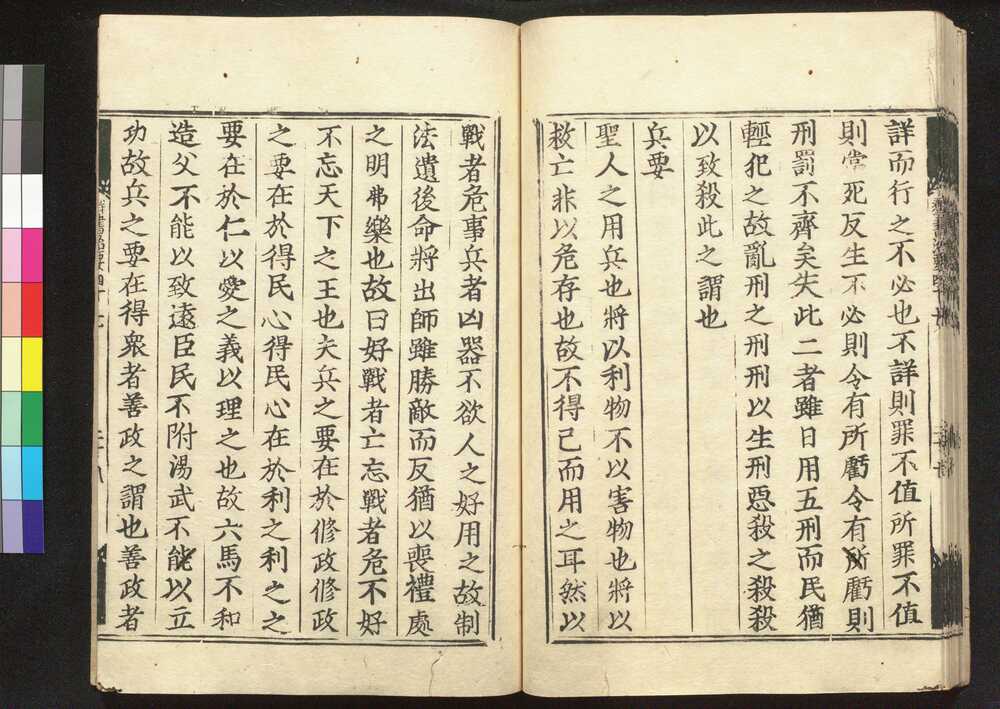 詳而行之不必也不詳則罪不值所罪不值
則當死反生不必則令有所虧令有所虧則
刑罰不齊矣失此二者雖日用五刑而民猶
輕犯之故亂刑之刑刑以生刑惡殺之殺殺
以致殺此之謂也
兵要
聖人之用兵也將以利物不以害物也將以
救亡非以危存也故不得已而用之耳然以
戰者危事兵者凶器不欲人之好用之故制
法遺後命將出師雖勝敵而反猶以喪禮處
之明弗樂也故曰好戰者亡忘戰者危不好
不忘天下之王也夫兵之要在於修政修政
之要在於得民心得民心在於利之利之之
要在於仁以愛之義以理之也故六馬不和
造父不能以致遠臣民不附湯武不能以立
功故兵之要在得眾者善政之謂也善政者